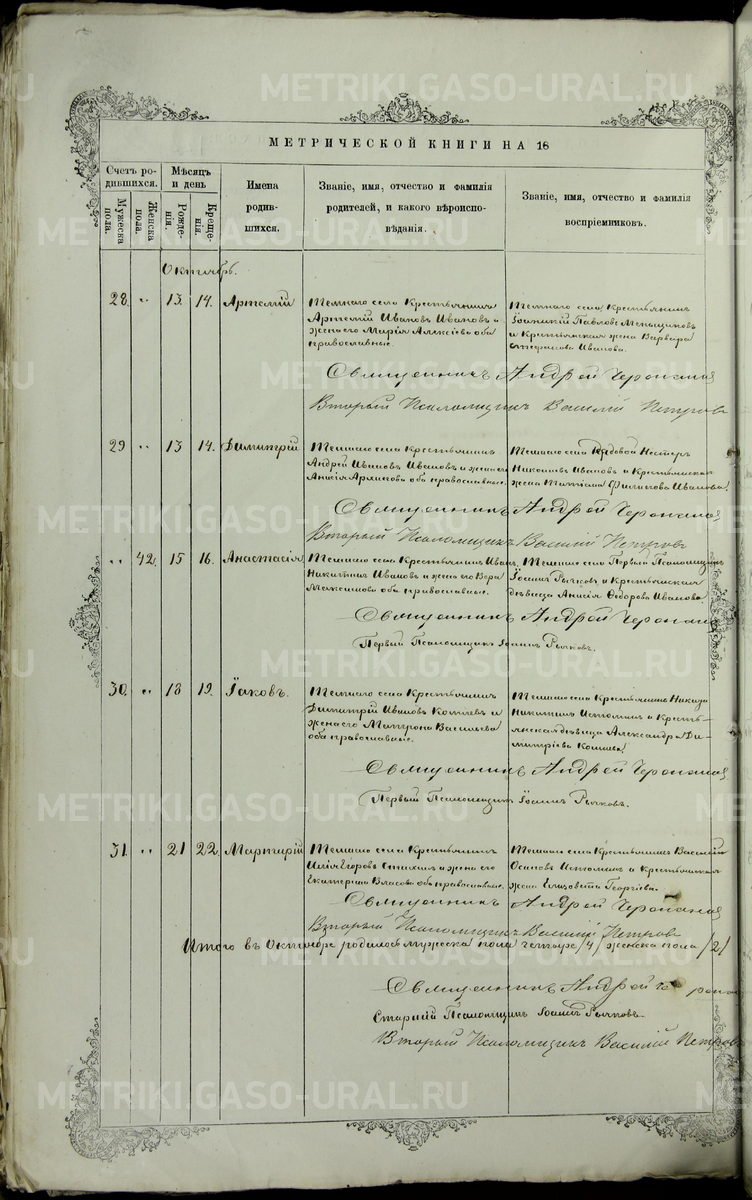 METRIKI.GASO-URAL.RU
МЕТРИЧЕСКОЙ КНИГИ НА 18
Счетъ ро-
дившихся.
Мужеска пола.
Женска пола.
Мѣсяцъ
и день
Рожде-
нія.
Креще-
нія.
Имена
родив-
шихся.
Званіе, имя, отчество и фамилія
родителей, и какого вѣроиспо-
вѣданія.
Званіе, имя, отчество и фамилія
воспріемниковъ.
Октябрь.
28 " 13 14. Артемій
села Крестьянинъ
Артемій Ивановъ Ивановъ и
жена его Марія Алексіева оба
православные.
села Крестьянинъ
Павловъ Меньщиковъ
и Крестьянская жена Варвара
Иванова.
Священникъ Андрей
Второй Псаломщикъ Василій Петровъ
29 " 13 14. Димитрій
села Крестьянинъ
Андрей Ивановъ Ивановъ и жена его
Анисія Архипова оба православные.
село Рядовой Нестеръ
Никитинъ Ивановъ и Крестьянская
жена Татіана Филипова Иванова.
Священникъ Андрей
Второй Псаломщикъ Василій Петровъ
" 42. 15 16. Анастасія
села Крестьянинъ Иванъ
Никитинъ Ивановъ и жена его Вера
Максимова оба православные.
села Первый Псаломщикъ
Іоаннъ Рычковъ и Крестьянская
дѣвица Анисія Ѳедорова Иванова.
Священникъ Андрей
Первый Псаломщикъ Іоаннъ Рычковъ.
30 " 18 19. Іаковъ.
села Крестьянинъ
Димитрій Ивановъ и
жена его Матрона Васильева
оба православные.
села Крестьянинъ
Никитинъ Истоминъ и Кресть-
янская дѣвица Александра Ди-
митріева
Священникъ Андрей
Первый Псаломщикъ Іоаннъ Рычковъ.
31. " 21 22. Мартирій
села Крестьянинъ
Илія Егоровъ и жена его
Екатерина Власова оба православные.
села Крестьянинъ Василій
Осиповъ Истоминъ и Крестьянская
жена Елизавета Георгіева.
Священникъ Андрей
Второй Псаломщикъ Василій Петровъ
Итого въ Октябре родилось мужеска пола четыре /4/ женска пола /2/
Священникъ Андрей
Старшій Псаломщикъ Іоаннъ Рычковъ.
Второй Псаломщикъ Василій Петровъ